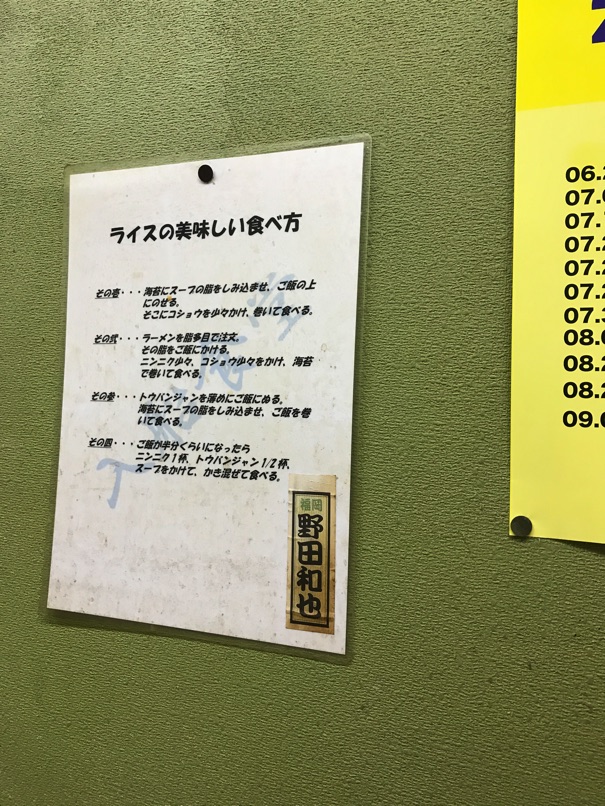 ライスの美味しい食べ方
その壱・・・海苔にスープの脂をしみ込ませ、ご飯の上
にのせる。
そこにコショウを少々かけ、巻いて食べる。
その弐・・・ラーメンを脂多目で注文。
その脂をご飯にかける。
ニンニク少々、コショウ少々をかけ、海苔
で巻いて食べる。
その参・・・トウバンジャンを薄めにご飯にぬる。
海苔にスープの脂をしみ込ませ、ご飯を巻
いて食べる。
その四・・・ご飯が半分くらいになったら
ニンニク1杯、トウバンジャン1/2杯、
スープをかけて、かき混ぜて食べる。
福岡
野田和也
06.2
07.
07.
07.2
07.2
07.2
07.3
08.
08.2
08.2
09.